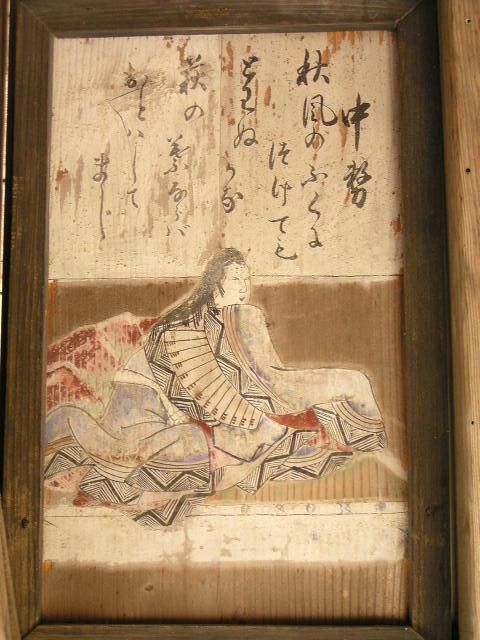 中務
秋風のふくに
つけても
とはぬ
かな
荻の
葉ならば
おとはして
まし